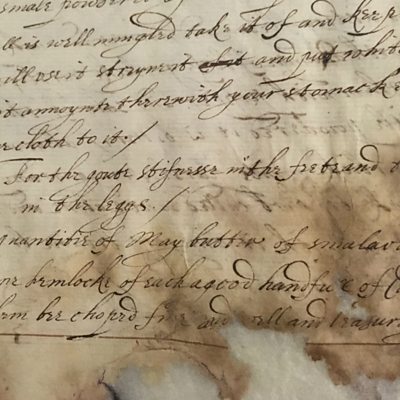 smale powdered of
ll is well mingled take it of and kee
ill use it streyne it and put whit
it annoynte therewith your stomacke
e cloth to it /
For the goute stifnesse in the feete and
in the leggs /
quantitie of May butter of smalac
ne hemlocke of each a good handfull of
hem bee choped f and ell and